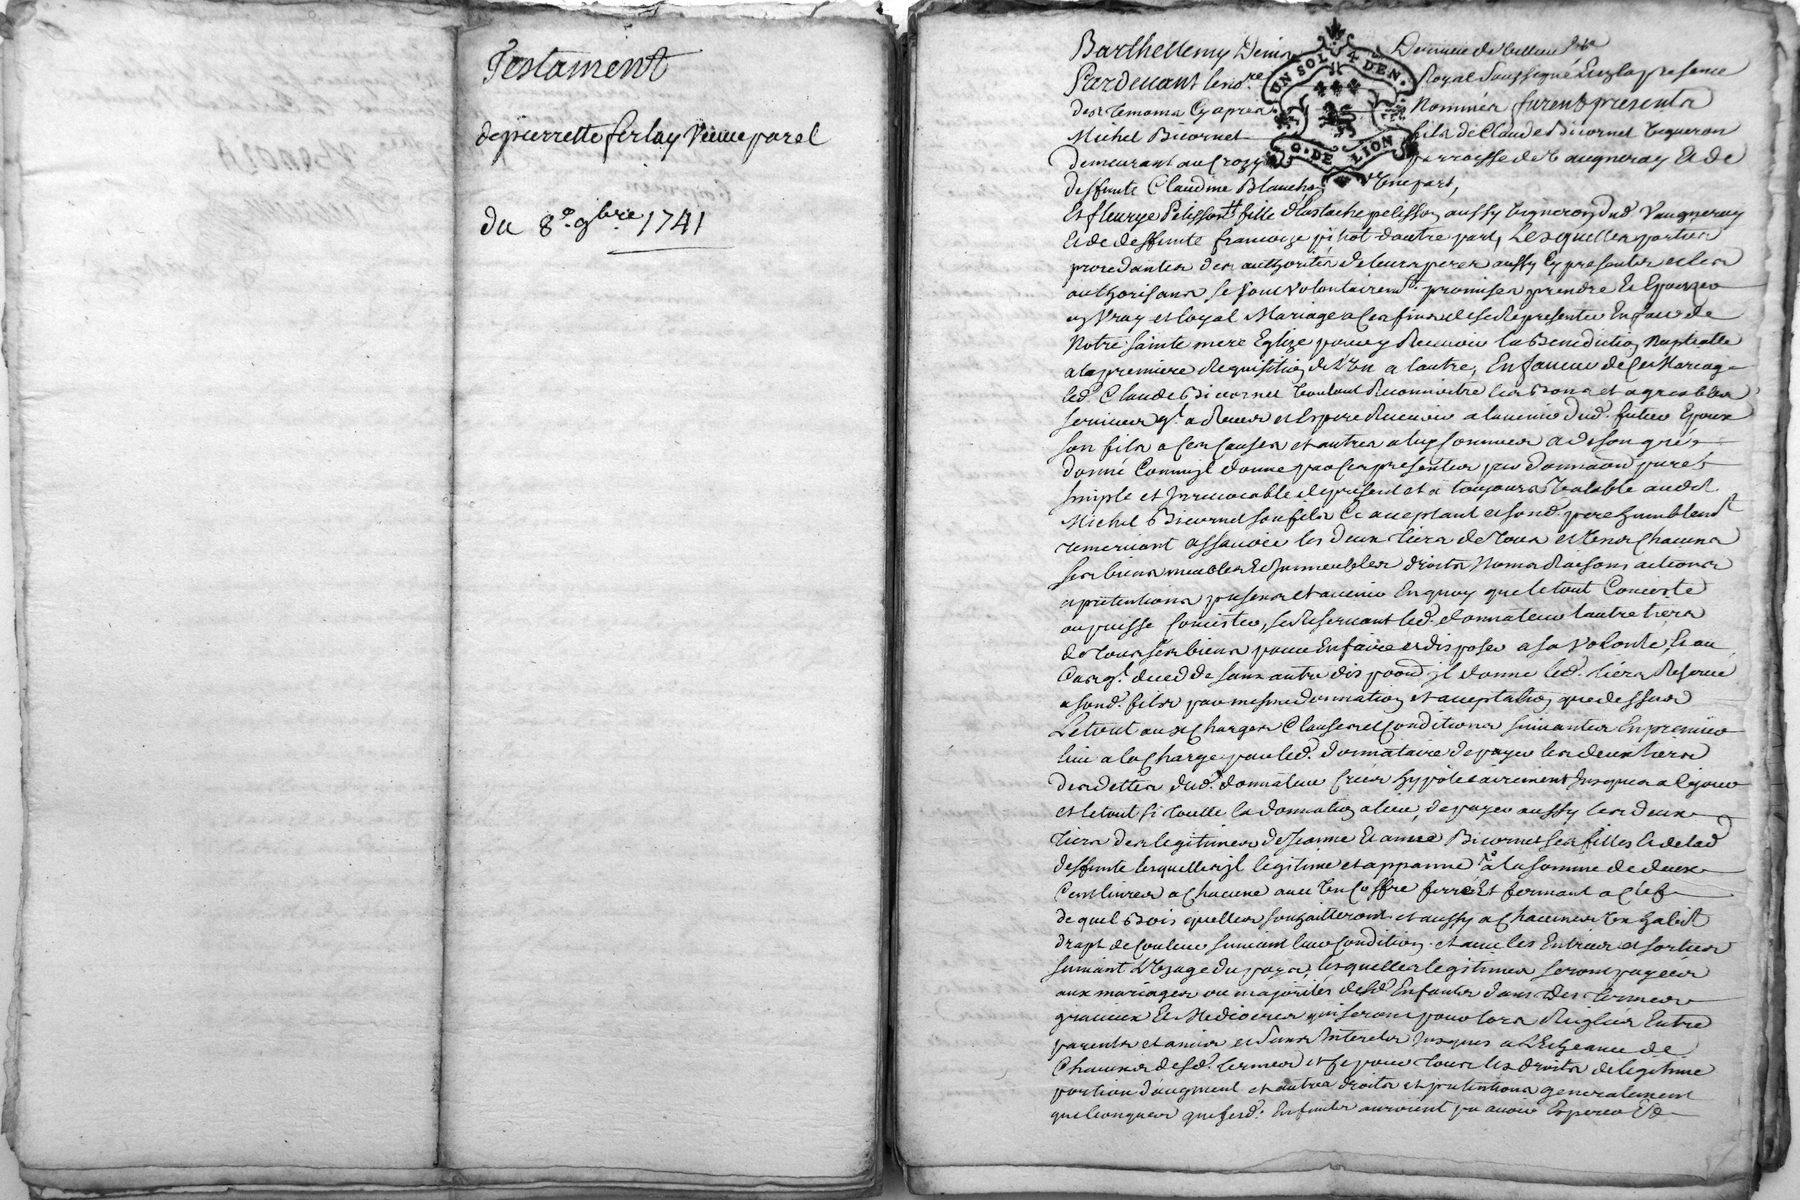 Testament
de pierrette ferlay Veuve parel
du 8.e 9bre. 1741
UN SOL 4 DEN.
G. DE LION
Barthellemy Denis
Pardevant le no.re Royal Soussigné En la presence
des Temoins Cy apres Nommés furent presents
Michel Bicornet fils de Claude Bicornet Vigneron
demeurant au Crozy parroisse de Vaugneray Et de
deffunte Claudine Blanche d'Une part,
Et fleurye Pelisson fille d'Eustache pelisson aussy Vigneron dud. Vaugneray
Et de deffunte francoize pitiot d'autre part, Lesquelles parties
procedantes des authorités de leurs peres aussy Cy presents et les
authorisans se sont volontairemt. promises prendre Et Epouzer
en Vray et loyal Mariage a Ces fins de se Representer En face de
Notre Sainte mere Eglize pour y Recevoir la Benediction Nuptialle
a la premiere Requisition de L'Un a l'autre, En faveur de Ce Mariage
led. Claude Bicornet Voulant Reconnoitre les Bons et agreables
services q'il a Receu et Espere Recevoir a l'avenir dud. futur Epoux
son fils a Ces Causes et autres a luy Connues a de son gré
donné Comm'il donne par Ces presentes par donnaon pure et
simple et Irrevocable a present et a toujours Valable aud.
Michel Bicornet son fils Ce acceptant et sond. pere humblemt
remerciant assavoir les deux tiers de tous et Uns Chacuns
ses biens meubles Et Immeubles droits Noms Raisons actions
et pretentions presens et avenir En quoy que le tout Conciste
ou puisse Concister, se Reservant led. donnateur l'autre tiers
de tous ses biens pour En faire et disposer a sa Volonté, Et au
Cas q'il decedde sans autre dispoon il donne led. tiers Reservé
a sond. fils par mesme donnation et acceptation que dessus
Le tout aux Charges Clauses et Conditions suivantes En premier
lieu a la Charge par led. donnataire de payer les deux tiers
des dettes dud. donnateur Crées hypotecairement Jusques a Ce jour
et le tout si toutte la donnation a lieu, de payer aussy les deux
tiers des legitimes de Jeanne Et Bicornet ses filles Et de lad
deffunte lesquelles il legitime et appanne a la somme de deux
Cent livres a Chacune avec Un Coffre ferré Et fermant a Clef
de quel Bois qu'elles souhaitteront et aussy a Chacunes Un habit
drapt de Couleur suivant leur Condition et avec les Entrées et sorties
suivant L'Usage du pays, lesquelles legitimes seront payées
aux mariages ou majorités desd. Enfants dans des termes
gracieux Et Mediocres qui seront pour lors Reglés Entre
parents et amis et sans Interets Jusques a L'Echeance de
Chacuns desd. termes et Ce pour tous les droits de legitime
portion d'augment et autres droits et pretentions generalement
quelconques que sesd. Enfants auroient pu avoir Esperer Et